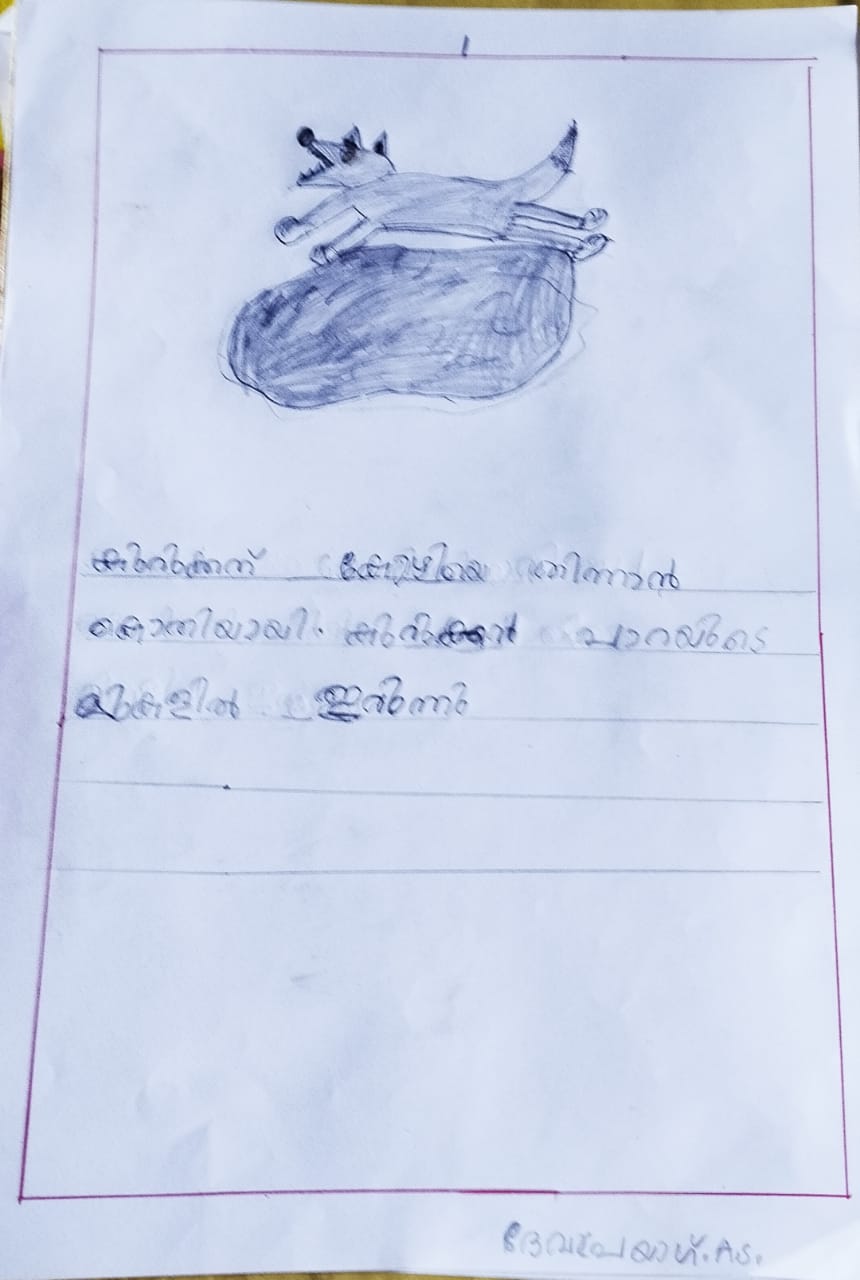 1
കുറുക്കന് കോഴിയെ തിന്നാൻ
കൊതിയായി. കുറുക്കൻ പാറയുടെ
മുകളിൽ ഇരുന്നു
A.S.